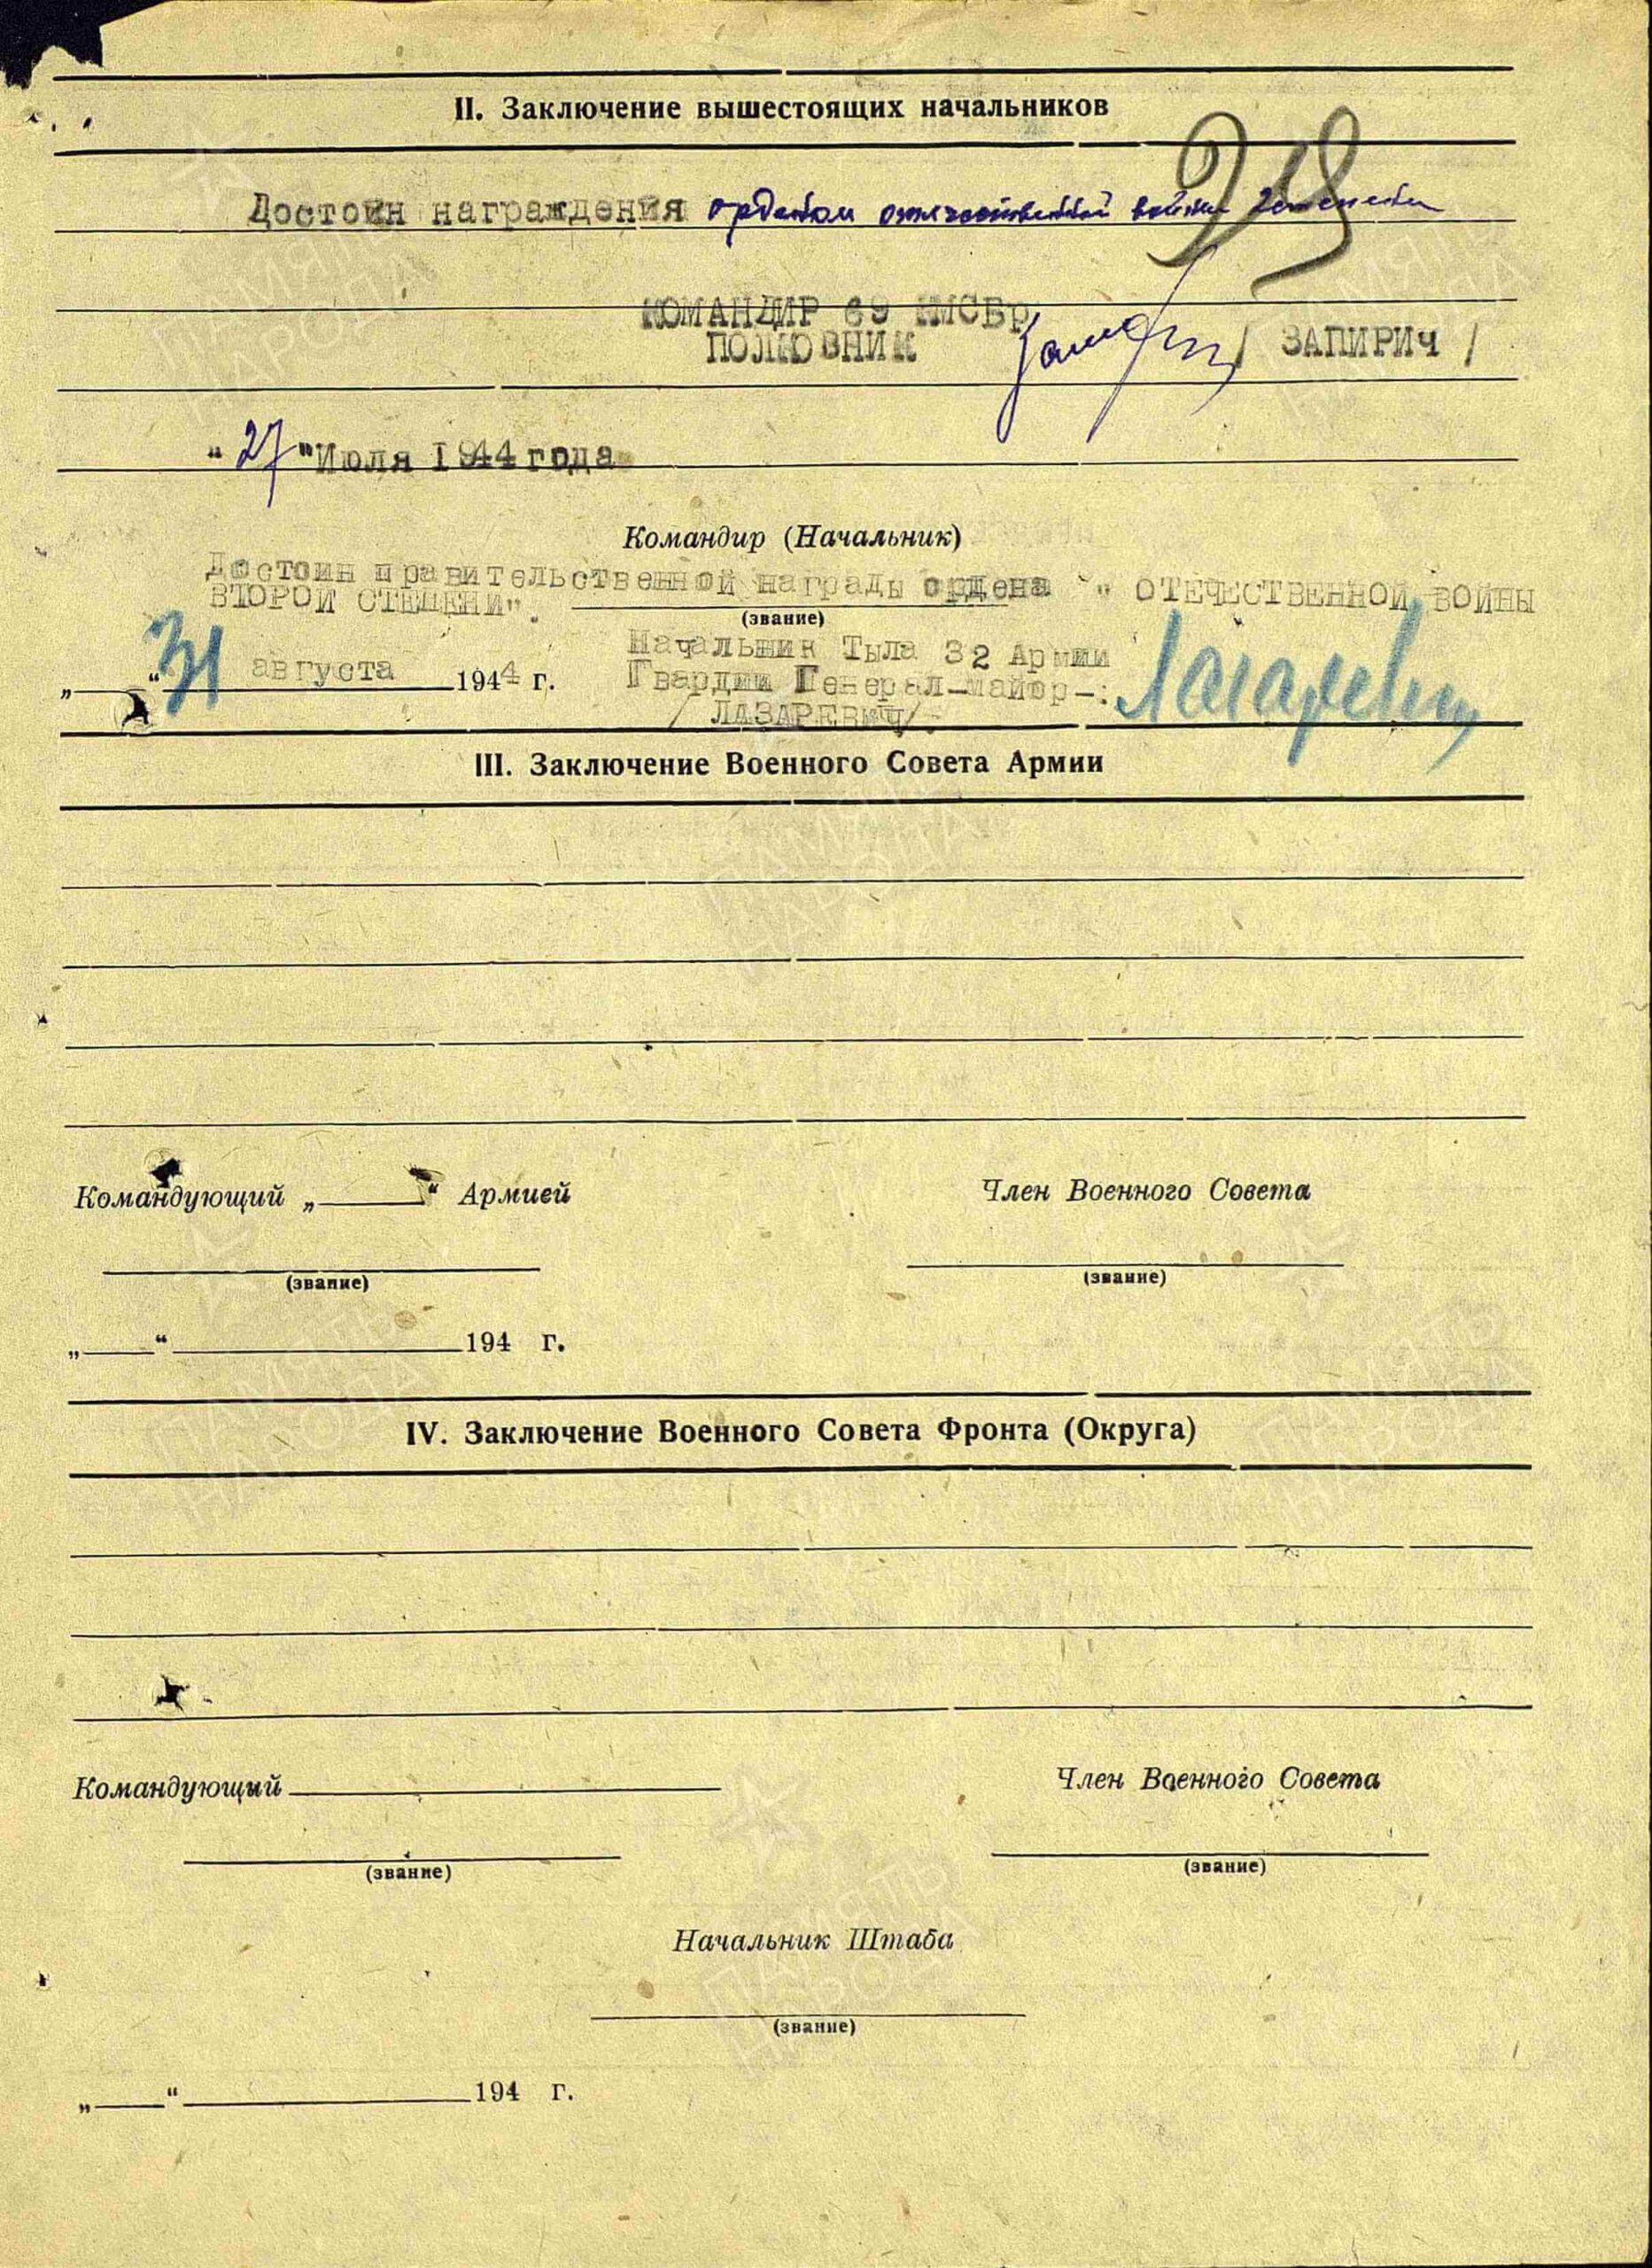 II. Заключение вышестоящих начальников
29
Достоин награждения орденом отечественной войны 2 степени
КОМАНДИР 69 КМСБр
ПОЛКОВНИК / ЗАПИРИЧ /
"27" Июля 1944 года
Командир (Начальник)
Достоин правительственной награды ордена " ОТЕЧЕСТВЕННОЙ ВОЙНЫ
ВТОРОЙ СТЕПЕНИ".
(звание)
Начальник Тыла 32 Армии
„ “ 31 августа 1944 г. Гвардии Генерал-майор-: Лазаревич
/ЛАЗАРЕВИЧ/
III. Заключение Военного Совета Армии
Командующий „ “ Армией Член Военного Совета
(звание) (звание)
„ “ 194 г.
IV. Заключение Военного Совета Фронта (Округа)
Командующий Член Военного Совета
(звание) (звание)
Начальник Штаба
(звание)
„ “ 194 г.
ПАМЯТЬ НАРОДА